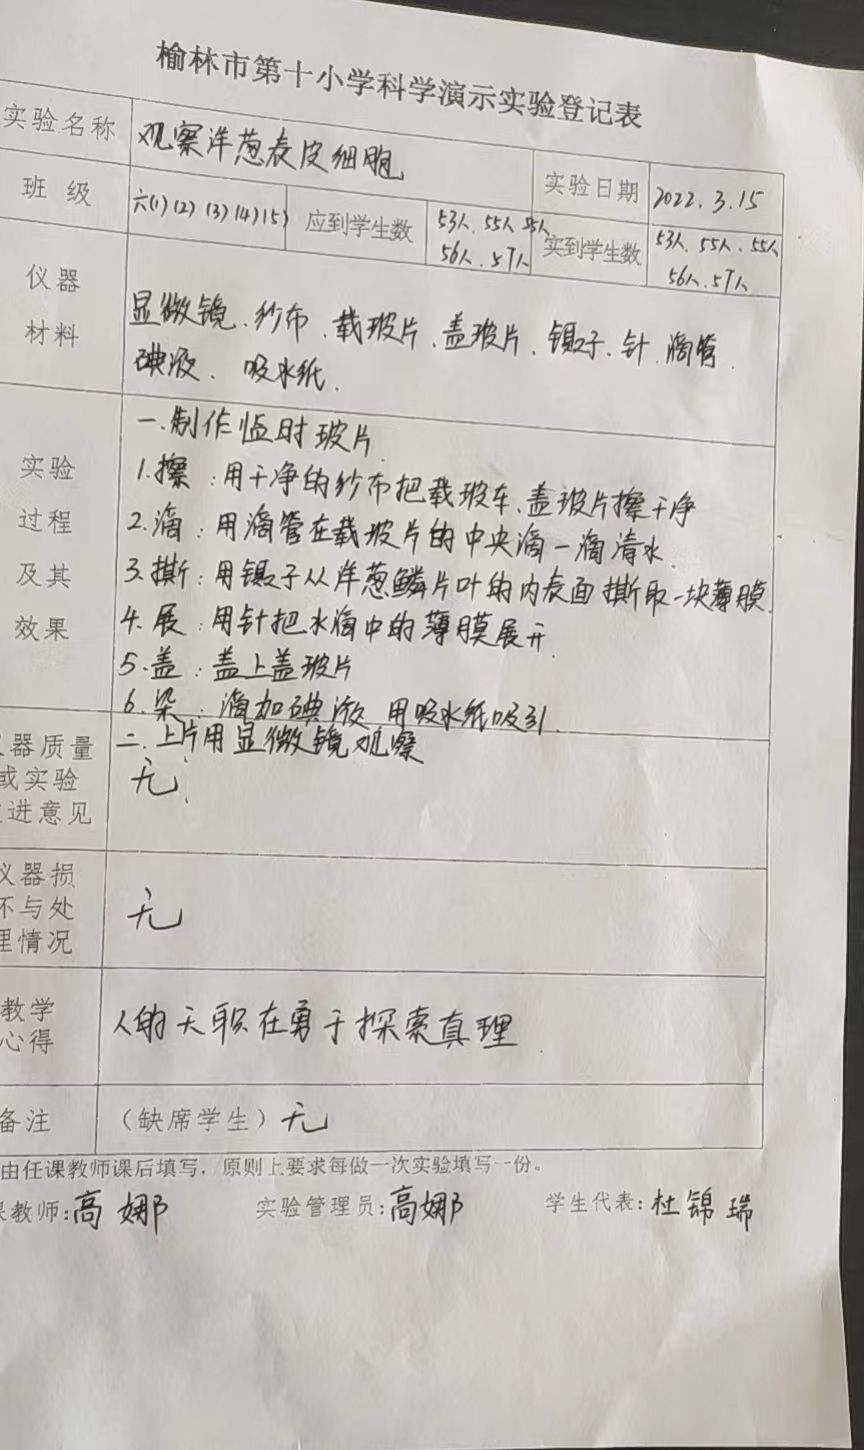 榆林市第十小学科学演示实验登记表
实验名称 观察洋葱表皮细胞 实验日期 2022.3.15
班 级 六(1)(2)(3)(4)(5) 应到学生数 53人、55人 55人 56人、57人 实到学生数 53人、55人、55人 56人、57人
仪器
材料
显微镜、纱布、载玻片、盖玻片、镊子、针、滴管、
碘液、吸水纸.
实验
过程
及其
效果
一.制作临时玻片.
1.擦:用干净的纱布把载玻车、盖玻片擦干净
2.滴:用滴管在载玻片的中央滴一滴清水.
3.撕:用镊子从洋葱鳞片叶的内表面撕取一块薄膜.
4.展:用针把水滴中的薄膜展开.
5.盖:盖上盖玻片
6.染:滴加碘液 用吸水纸吸引.
二.上片用显微镜观察
器质量
或实验
进意见
无
仪器损
坏与处
理情况
无
教学
心得
人的天职在勇于探索真理
备注 (缺席学生) 无
由任课教师课后填写,原则上要求每做一次实验填写一份。
课教师:高娜 实验管理员:高娜 学生代表:杜锦瑞